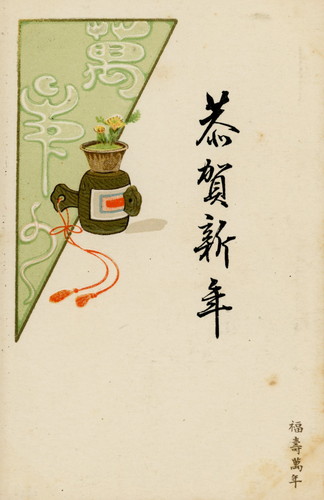 恭賀新年
萬年
福壽萬年